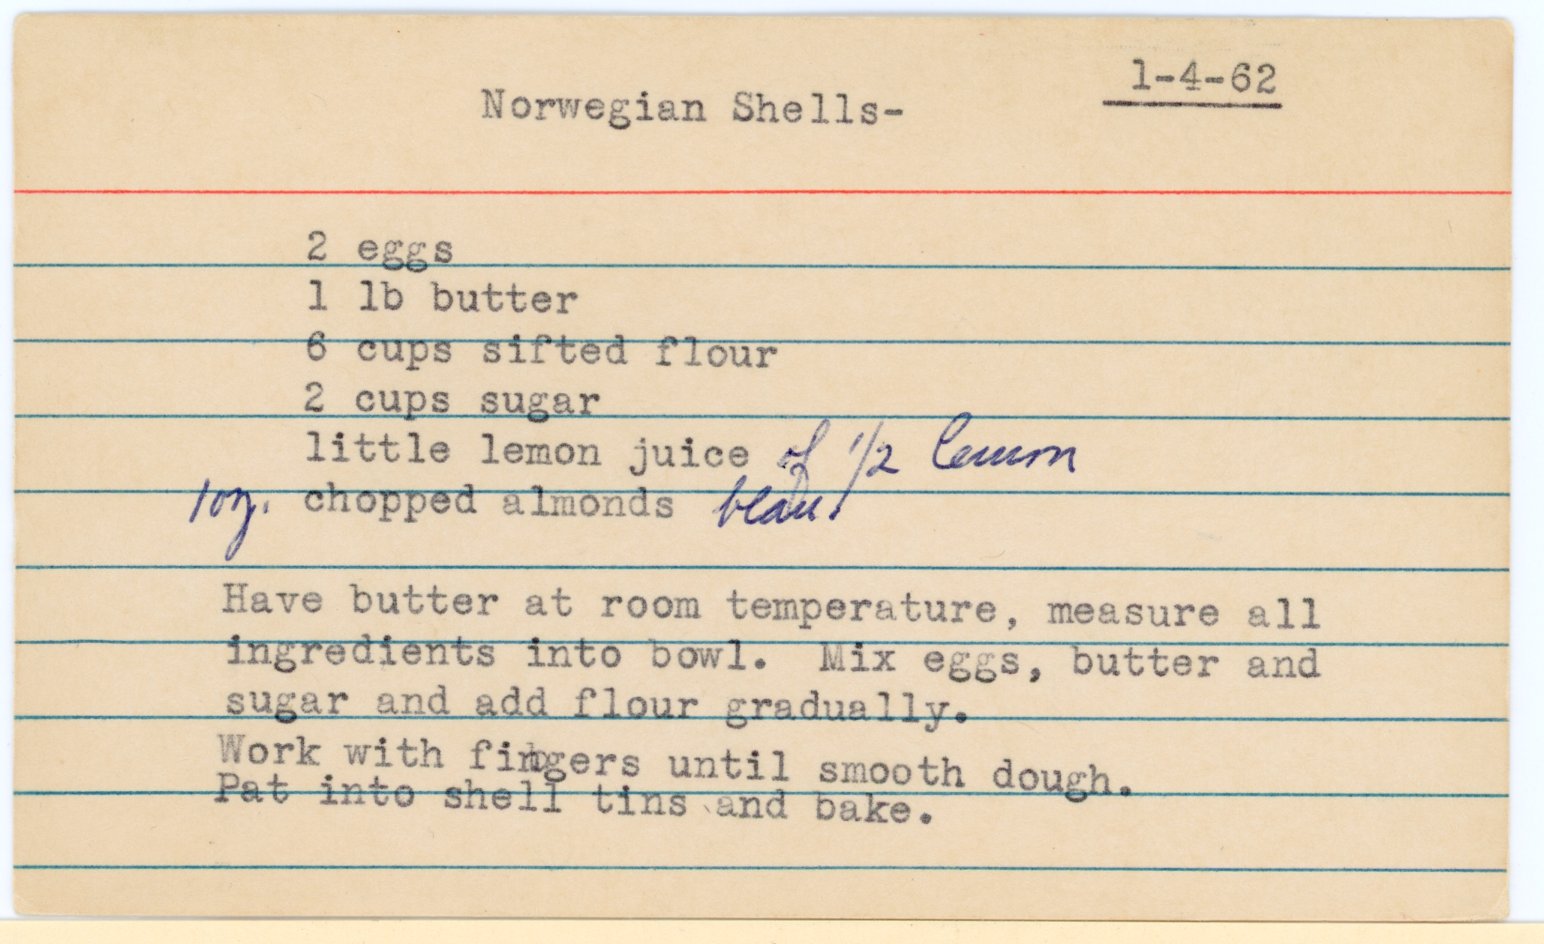 1-4-62
Norwegian Shells-
2 eggs
1 lb butter
6 cups sifted flour
2 cups sugar
little lemon juice of 1/2 lemon
1 oz. chopped almonds
Have butter at room temperature, measure all
ingredients into bowl. Mix eggs, butter and
sugar and add flour gradually.
Work with fingers until smooth dough.
Pat into shell tins and bake.